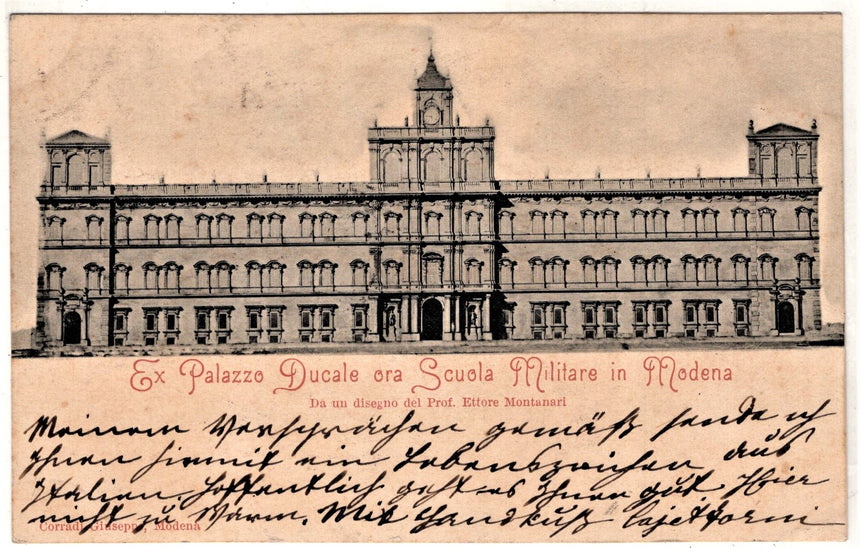 Ex Palazzo Ducale ora Scuola Militare in Modena
Da un disegno del Prof. Ettore Montanari
Meinem Versprächen gemäß sende ich
Ihnen hiermit ein Lebenszeichen aus
Italien. Hoffentlich geht es Ihnen gut. Hier
nicht zu warm. Mit Handkuß
Corradi Giuseppe, Modena